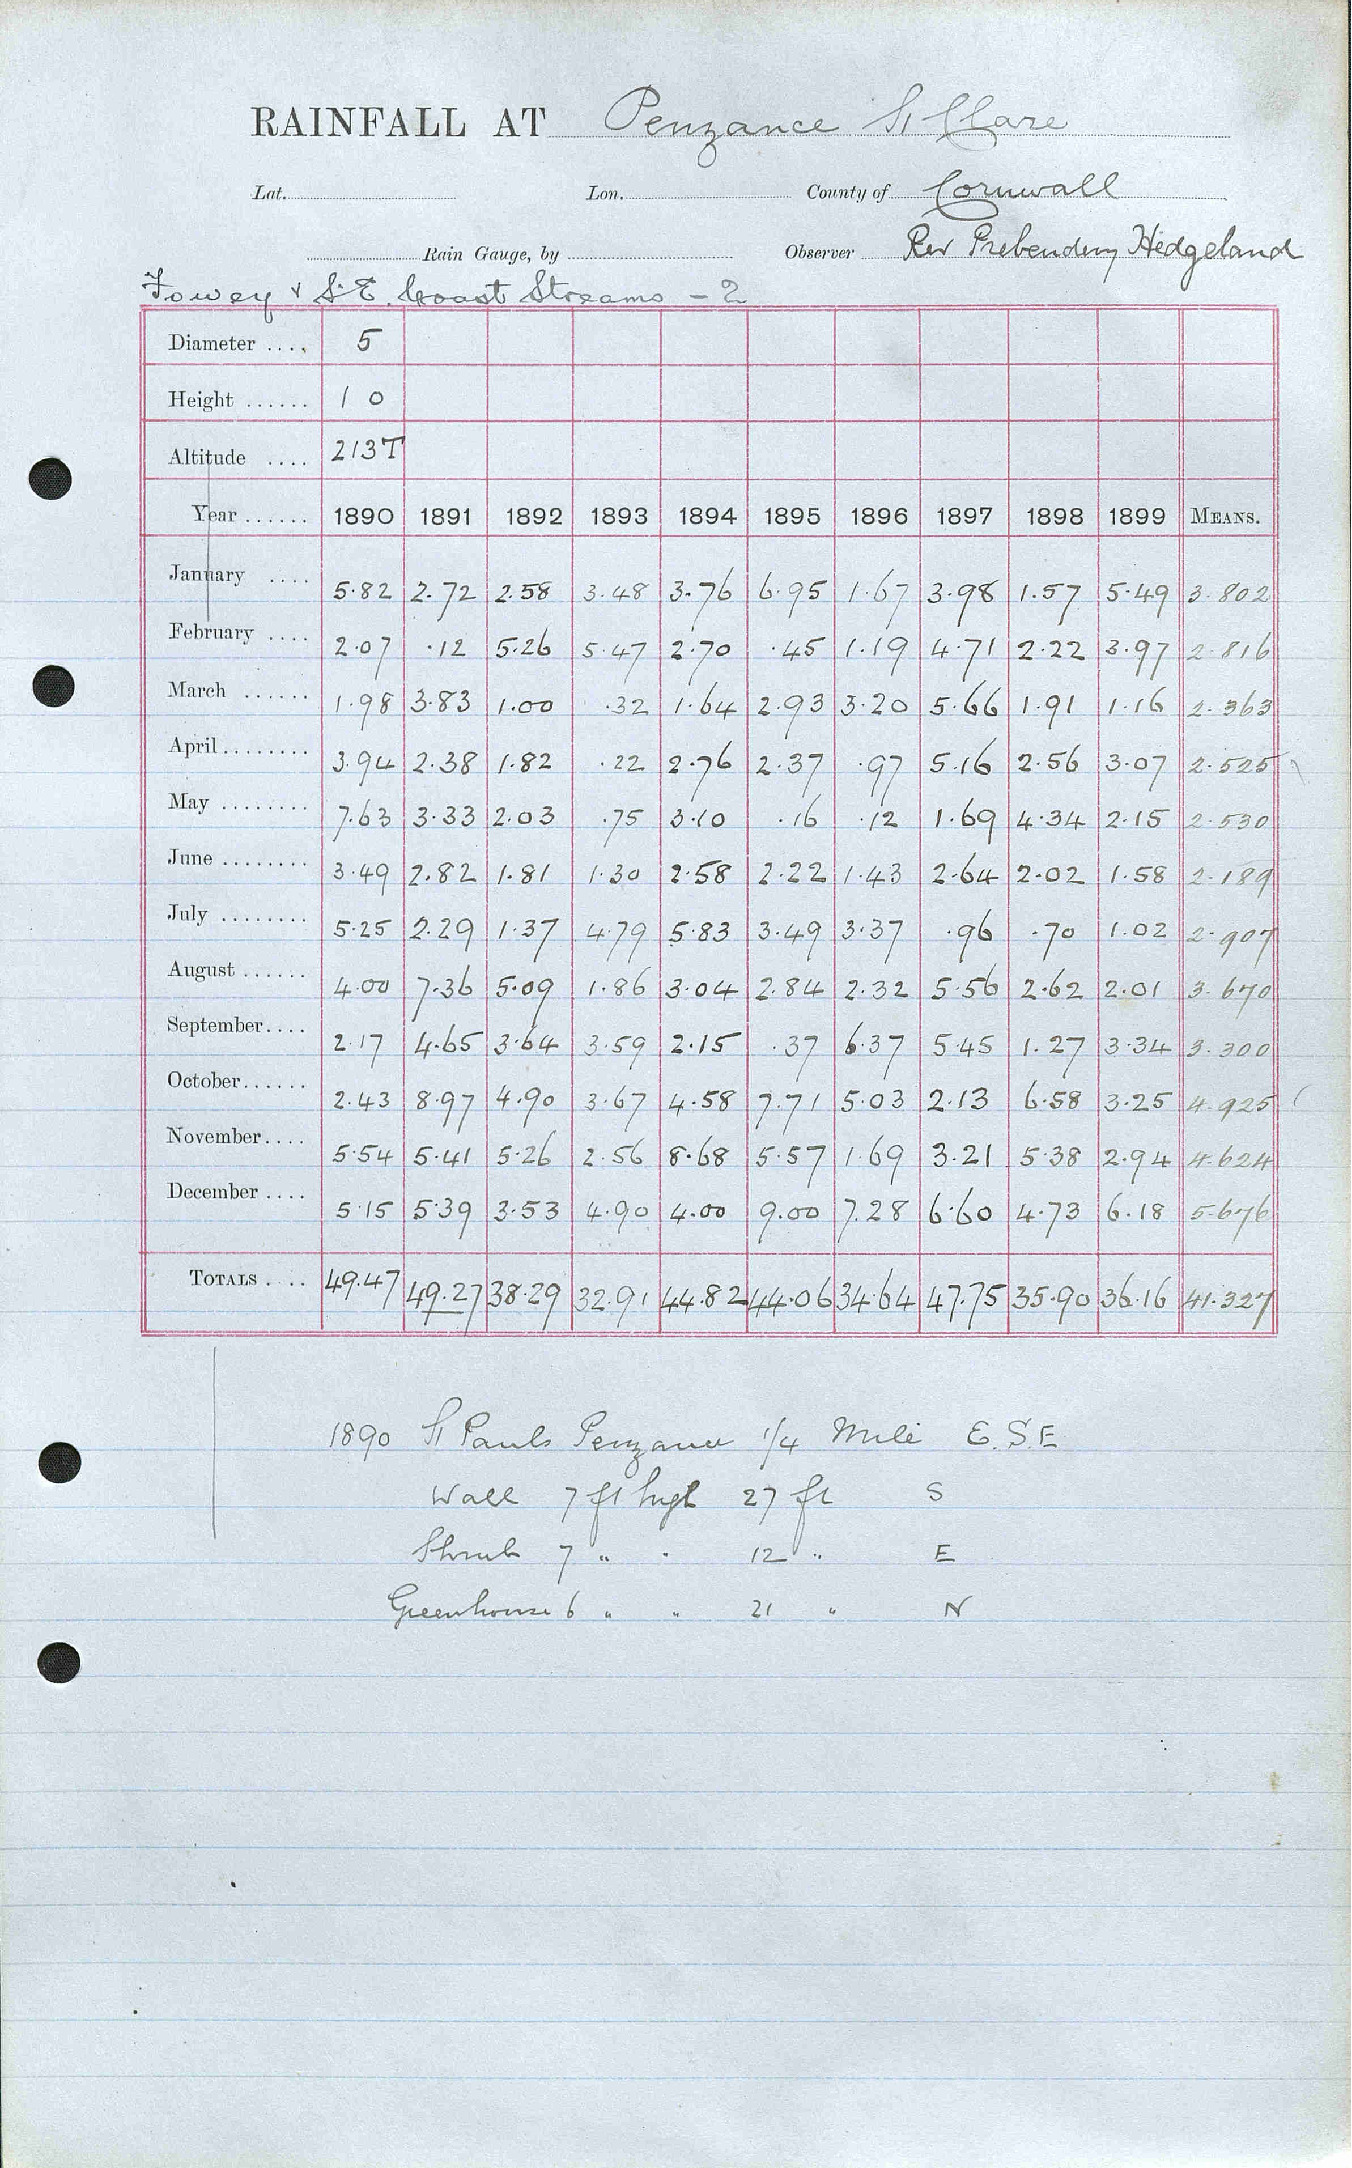 RAINFALL AT Penzance St Clare
Lat. Lon. County of Cornwall
Rain Gauge, by Observer Rev Prebendary Hedgeland
Fowey & S.E. Coast Streams - 2
Diameter .... 5
Height ...... 1 0
Altitude .... 213T
Year ...... 1890 1891 1892 1893 1894 1895 1896 1897 1898 1899 MEANS.
January .... 5.82 2.72 2.58 3.48 3.76 6.95 1.67 3.98 1.57 5.49 3.802
February .... 2.07 .12 5.26 5.47 2.70 .45 1.19 4.71 2.22 3.97 2.816
March ...... 1.98 3.83 1.00 .32 1.64 2.93 3.20 5.66 1.91 1.16 2.363
April ........ 3.94 2.38 1.82 .22 2.76 2.37 .97 5.16 2.56 3.07 2.525
May ........ 7.63 3.33 2.03 .75 3.10 .16 .12 1.69 4.34 2.15 2.530
June ........ 3.49 2.82 1.81 1.30 2.58 2.22 1.43 2.64 2.02 1.58 2.189
July ........ 5.25 2.29 1.37 4.79 5.83 3.49 3.37 .96 .70 1.02 2.907
August ...... 4.00 7.36 5.09 1.86 3.04 2.84 2.32 5.56 2.62 2.01 3.670
September .... 2.17 4.65 3.64 3.59 2.15 .37 6.37 5.45 1.27 3.34 3.300
October ...... 2.43 8.97 4.90 3.67 4.58 7.71 5.03 2.13 6.58 3.25 4.925
November .... 5.54 5.41 5.26 2.56 8.68 5.57 1.69 3.21 5.38 2.94 4.624
December .... 5.15 5.39 3.53 4.90 4.00 9.00 7.28 6.60 4.73 6.18 5.676
TOTALS .... 49.47 49.27 38.29 32.91 44.82 44.06 34.64 47.75 35.90 36.16 41.327
1890 St Pauls Penzance 1/4 Mile E.S.E
Wall 7 ft high 27 ft S
Shrub 7 " " 12 " E
Greenhouse 6 " " 21 " N